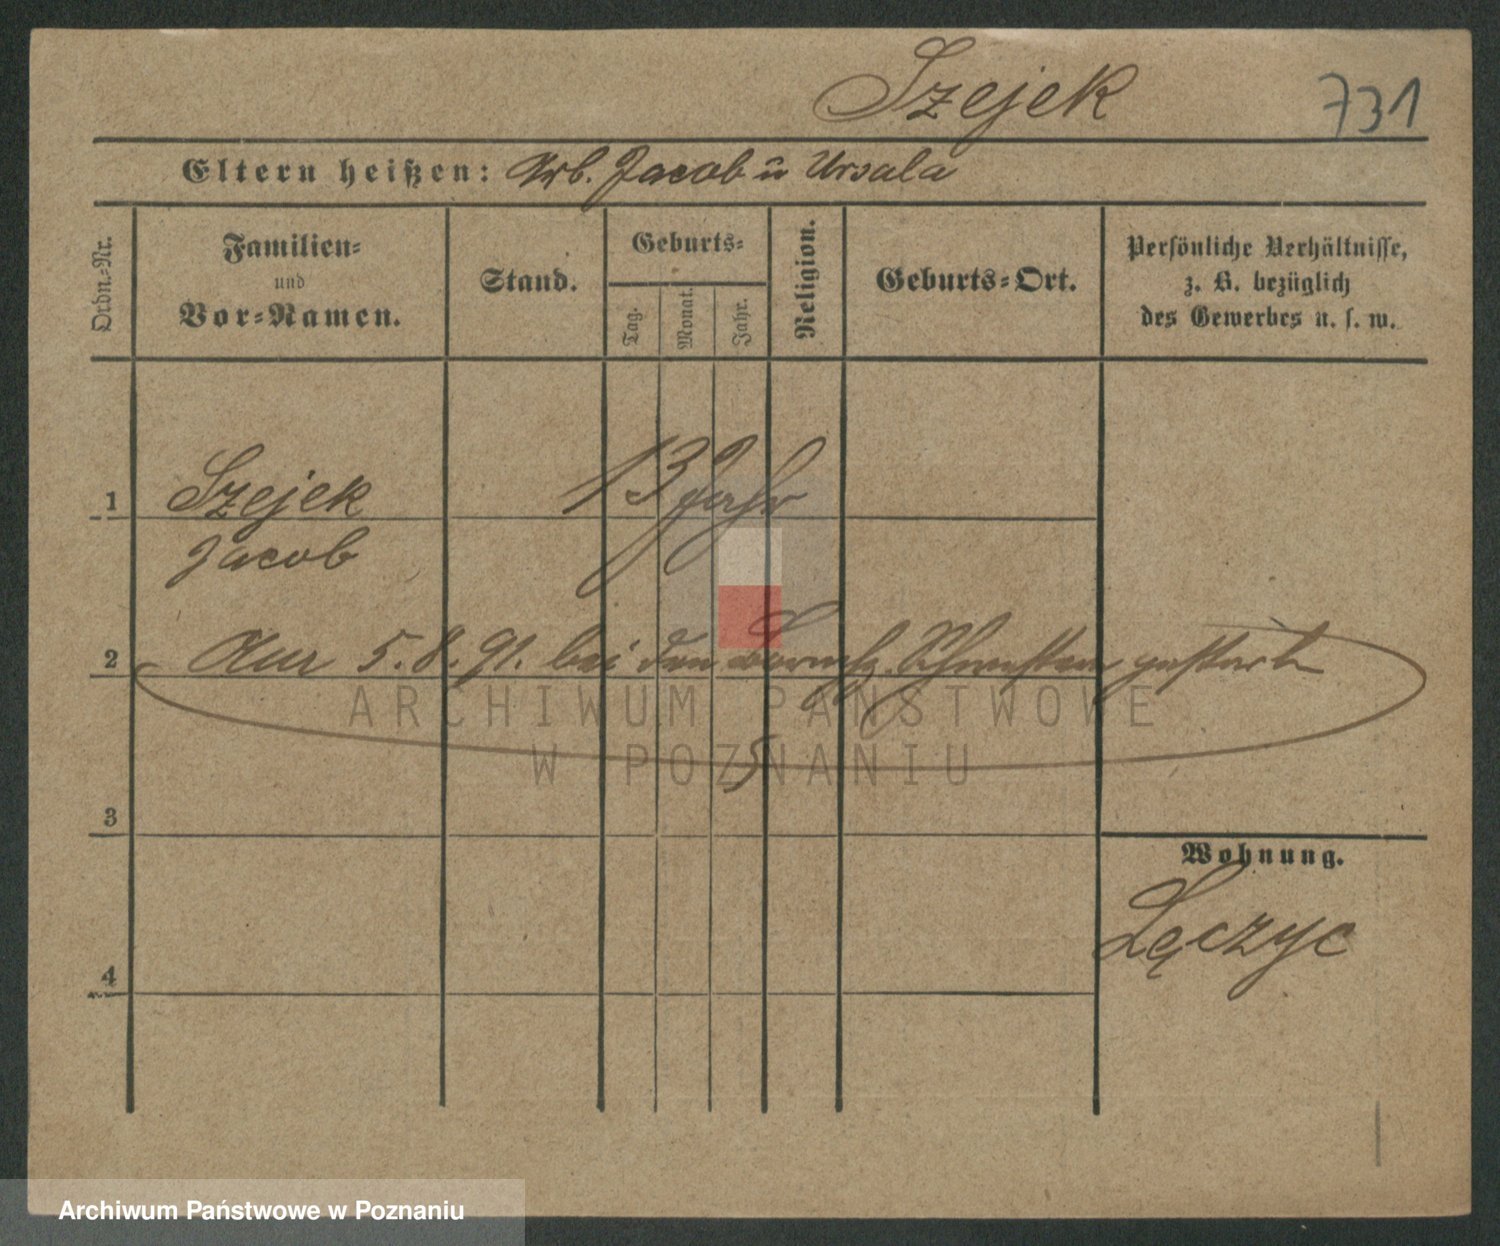 Szejek
731
Eltern heißen: Arb. Jacob u Ursala
Ordn.-Nr.
Familien-
und
Vor-Namen.
Stand.
Geburts-
Tag.
Monat.
Jahr.
Religion.
Geburts-Ort.
Persönliche Verhältnisse,
z. B. bezüglich
des Gewerbes u. s. w.
1
Szejek
13 Jahr
Jacob
2
5. 8. 91. bei den barmhz. Schwestern gestorb
ARCHIWUM PAŃSTWOWE
W POZNANIU
3
Wohnung.
Lęczyc
4
Archiwum Państwowe w Poznaniu